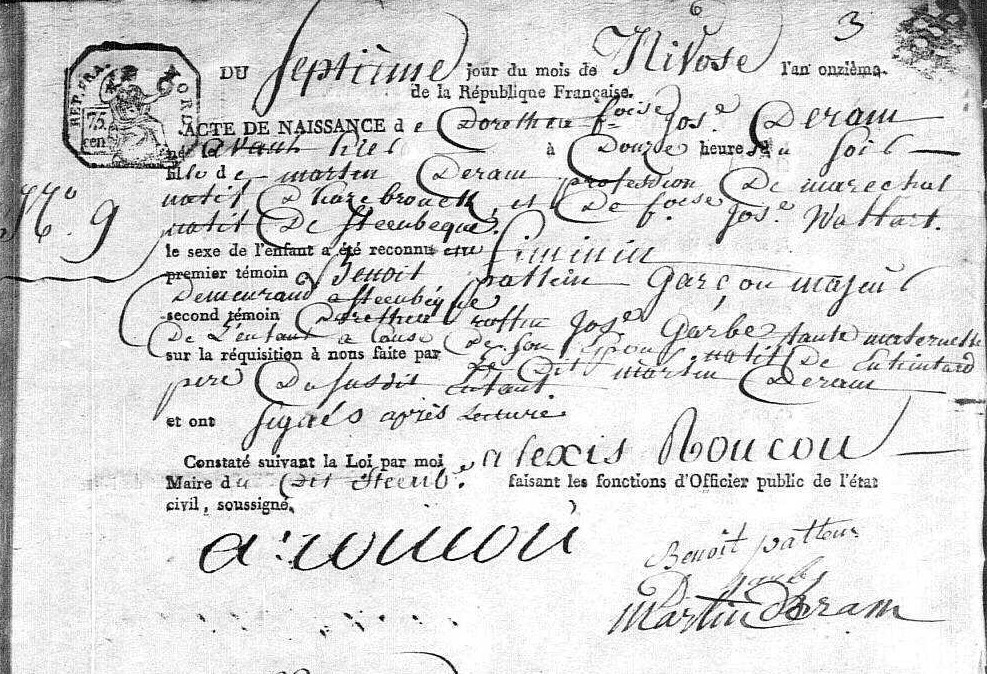 6
3
REP. FRA.
NORD
75
cen
DU septième jour du mois de Nivose l'an onzième
de la République Française.
ACTE DE NAISSANCE de Dorothée f.oise Jos.e Deram
né le avant hier à Douze heures du soir
fille de martin Deram profession De marechal
natif D'hazebrouck, et De f.oise Jos.e Wallart.
natif De Steenbeque.
N.o 9
le sexe de l'enfant a été reconnu feminin
premier témoin Benoit pattein garçon majeur
Demeurand a Steenbéque
second témoin Dorothée Jos.e Garbe tante maternelle
De L'enfant a cause De Son natif De
sur la réquisition à nous faite par Le Dit martin Deram
pere Du susdit Enfant.
et ont signés après Lecture
Constaté suivant la Loi par moi alexis Roucou
Maire du Dit Steenb.e faisant les fonctions d'Officier public de l'état
civil, soussigné.
a: roucou
Benoit pattein
Martin Deram